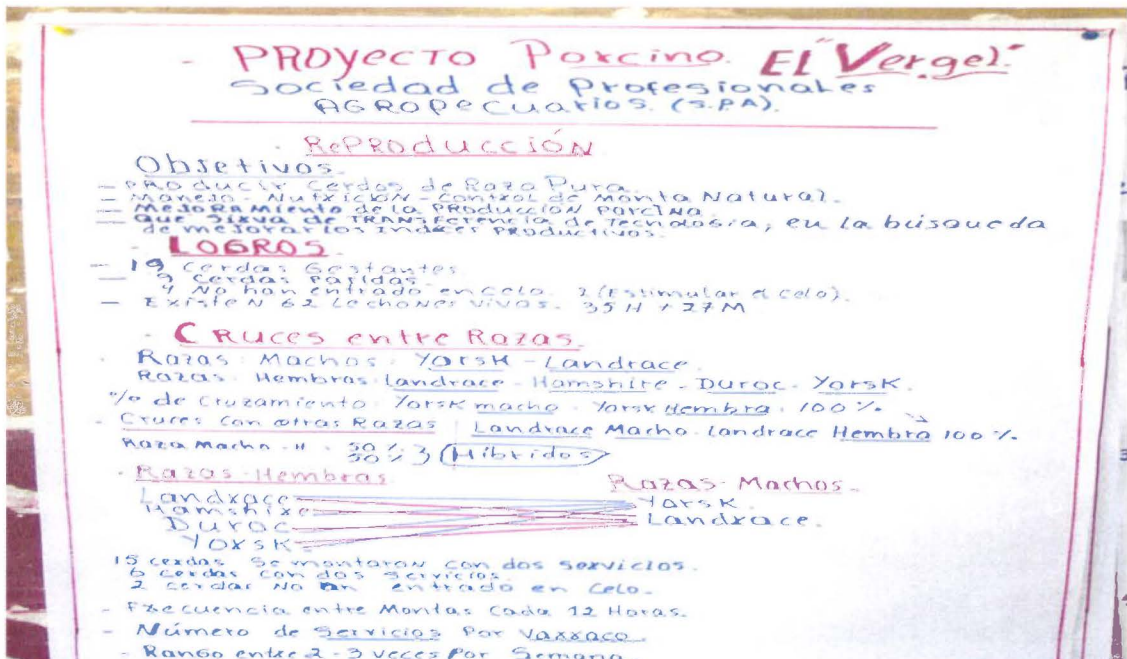 - PROyecTO Porcino. El "Vergel".
Sociedad de Profesionales
AGROPecuarios. (S.PA).
- RePRODucción
Objetivos.
- PRoducir Cerdos de Raza Pura.
- Manejo - Nutrición - Control de Monta Natural.
- MejoRaMiento de la PRoduccion Porcina.
- Que Sirva de TRANSferencia de Tecnología, en la búsqueda
de mejorar los Indices PRoductivos.
- LOGROS.
- 19 Cerdas Gestantes.
- 9 Cerdas Paridas.
4 No han entrado en Celo. 2 (Estimular el Celo).
- Existen 62 Lechones vivos. 35 H y 27 M
- CRuces entre Razas.
- Razas Machos. Yorsk - Landrace.
Razas Hembras. Landrace - Hamshire - Duroc - Yorsk.
% de Cruzamiento. Yorsk macho. Yorsk Hembra. 100 %.
- Cruces Con otras Razas Landrace Macho. Landrace Hembra 100 %.
Raza Macho - H. 50 % 50 % } (Híbridos)
- Razas Hembras Razas Machos.
Landrace Yorsk.
Hamshire Landrace.
Duroc
Yorsk
15 cerdas Se montaron con dos servicios.
6 cerdas con dos servicios.
2 cerdas No an entrado en Celo.
- Frecuencia entre Montas Cada 12 Horas.
- Número de Servicios Por Varraco.
- Rango entre 2 - 3 veces Por Semana.